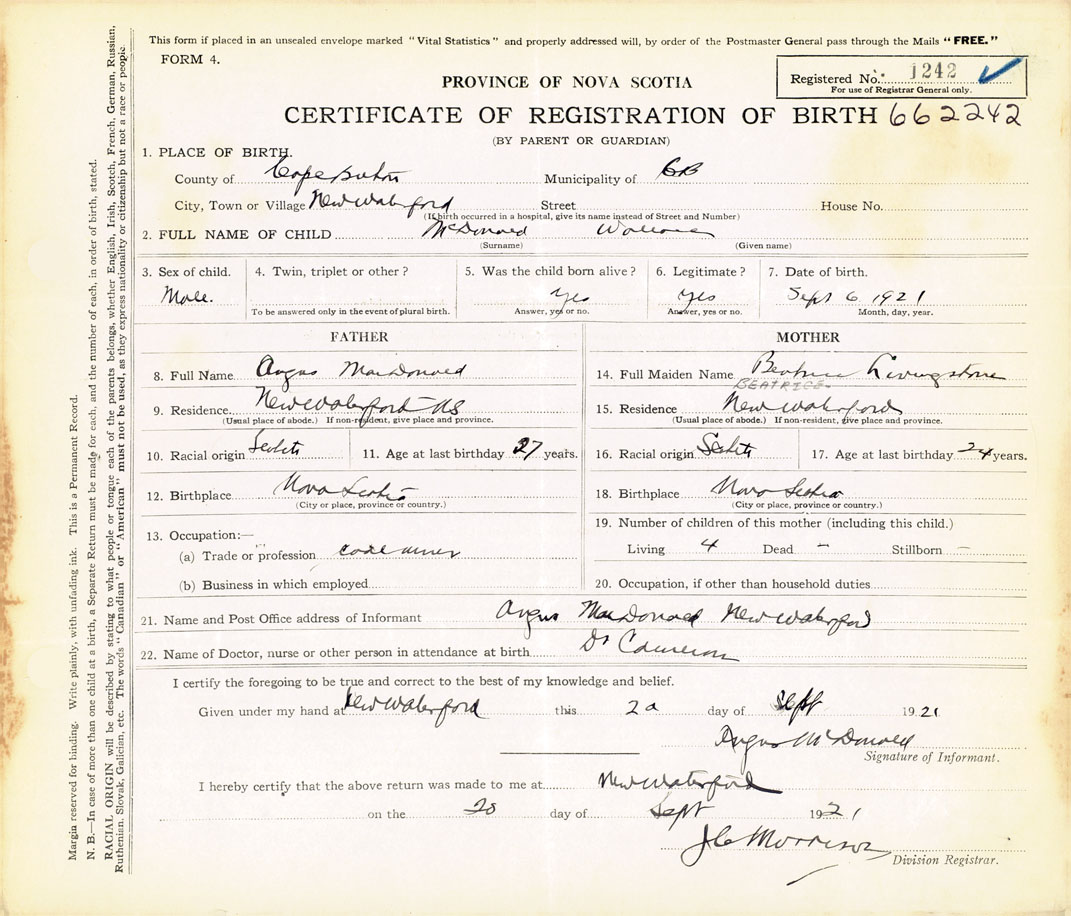 This form if placed in an unsealed envelope marked "Vital Statistics" and properly addressed will, by order of the Postmaster General pass through the Mails "FREE."
FORM 4.
Registered No. 1242
For use of Registrar General only.
PROVINCE OF NOVA SCOTIA
CERTIFICATE OF REGISTRATION OF BIRTH 662242
(BY PARENT OR GUARDIAN)
1. PLACE OF BIRTH.
County of Cape Breton Municipality of CB
City, Town or Village New Waterford Street House No.
(If birth occurred in a hospital, give its name instead of Street and Number)
2. FULL NAME OF CHILD McDonald Wallace
(Surname) (Given name)
3. Sex of child. 4. Twin, triplet or other? 5. Was the child born alive? 6. Legitimate? 7. Date of birth.
Male. yes yes Sept 6 1921
To be answered only in the event of plural birth. Answer, yes or no. Answer, yes or no. Month, day, year.
FATHER MOTHER
8. Full Name Angus MacDonald 14. Full Maiden Name Beatrice Livingstone
BEATRICE
9. Residence New Waterford NS 15. Residence New Waterford
(Usual place of abode.) If non-resident, give place and province. (Usual place of abode.) If non-resident, give place and province.
10. Racial origin 11. Age at last birthday 27 years. 16. Racial origin 17. Age at last birthday 24 years.
12. Birthplace Nova Scotia 18. Birthplace Nova Scotia
(City or place, province or country.) (City or place, province or country.)
13. Occupation:— 19. Number of children of this mother (including this child.)
(a) Trade or profession coal miner Living 4 Dead - Stillborn -
(b) Business in which employed 20. Occupation, if other than household duties
21. Name and Post Office address of Informant Angus MacDonald New Waterford
22. Name of Doctor, nurse or other person in attendance at birth Dr Cameron
I certify the foregoing to be true and correct to the best of my knowledge and belief.
Given under my hand at New Waterford this 20 day of Sept 1921
Angus McDonald
Signature of Informant.
I hereby certify that the above return was made to me at New Waterford
on the 20 day of Sept 1921
J C Morrison
Division Registrar.
Margin reserved for binding. Write plainly, with unfading ink. This is a Permanent Record.
N. B.—In case of more than one child at a birth, a Separate Return must be made for each, and the number of each, in order of birth, stated.
RACIAL ORIGIN will be described by stating to what people or tongue each of the parents belongs, whether English, Irish, Scotch, French, German, Russian,
Ruthenian, Slovak, Galician, etc. The words "Canadian" or "American" must not be used, as they express nationality or citizenship but not a race or people.